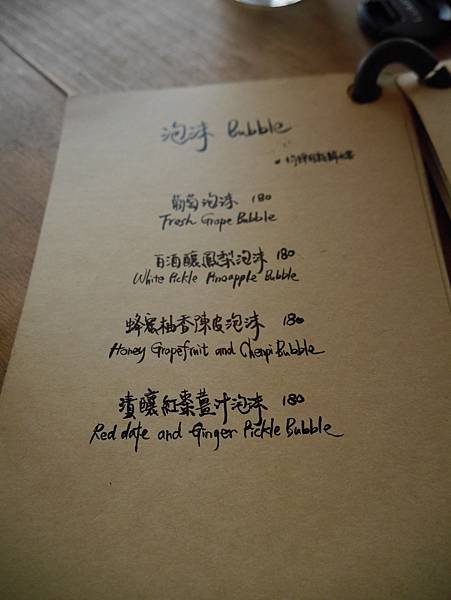 泡沫 Bubble
葡萄泡沫 180
Fresh Grape Bubble
白酒釀鳳梨泡沫 180
White Pickle Pineapple Bubble
蜂蜜柚香陳皮泡沫 180
Honey Grapefruit and Chenpi Bubble
漬釀紅棗薑汁泡沫 180
Red date and Ginger Pickle Bubble